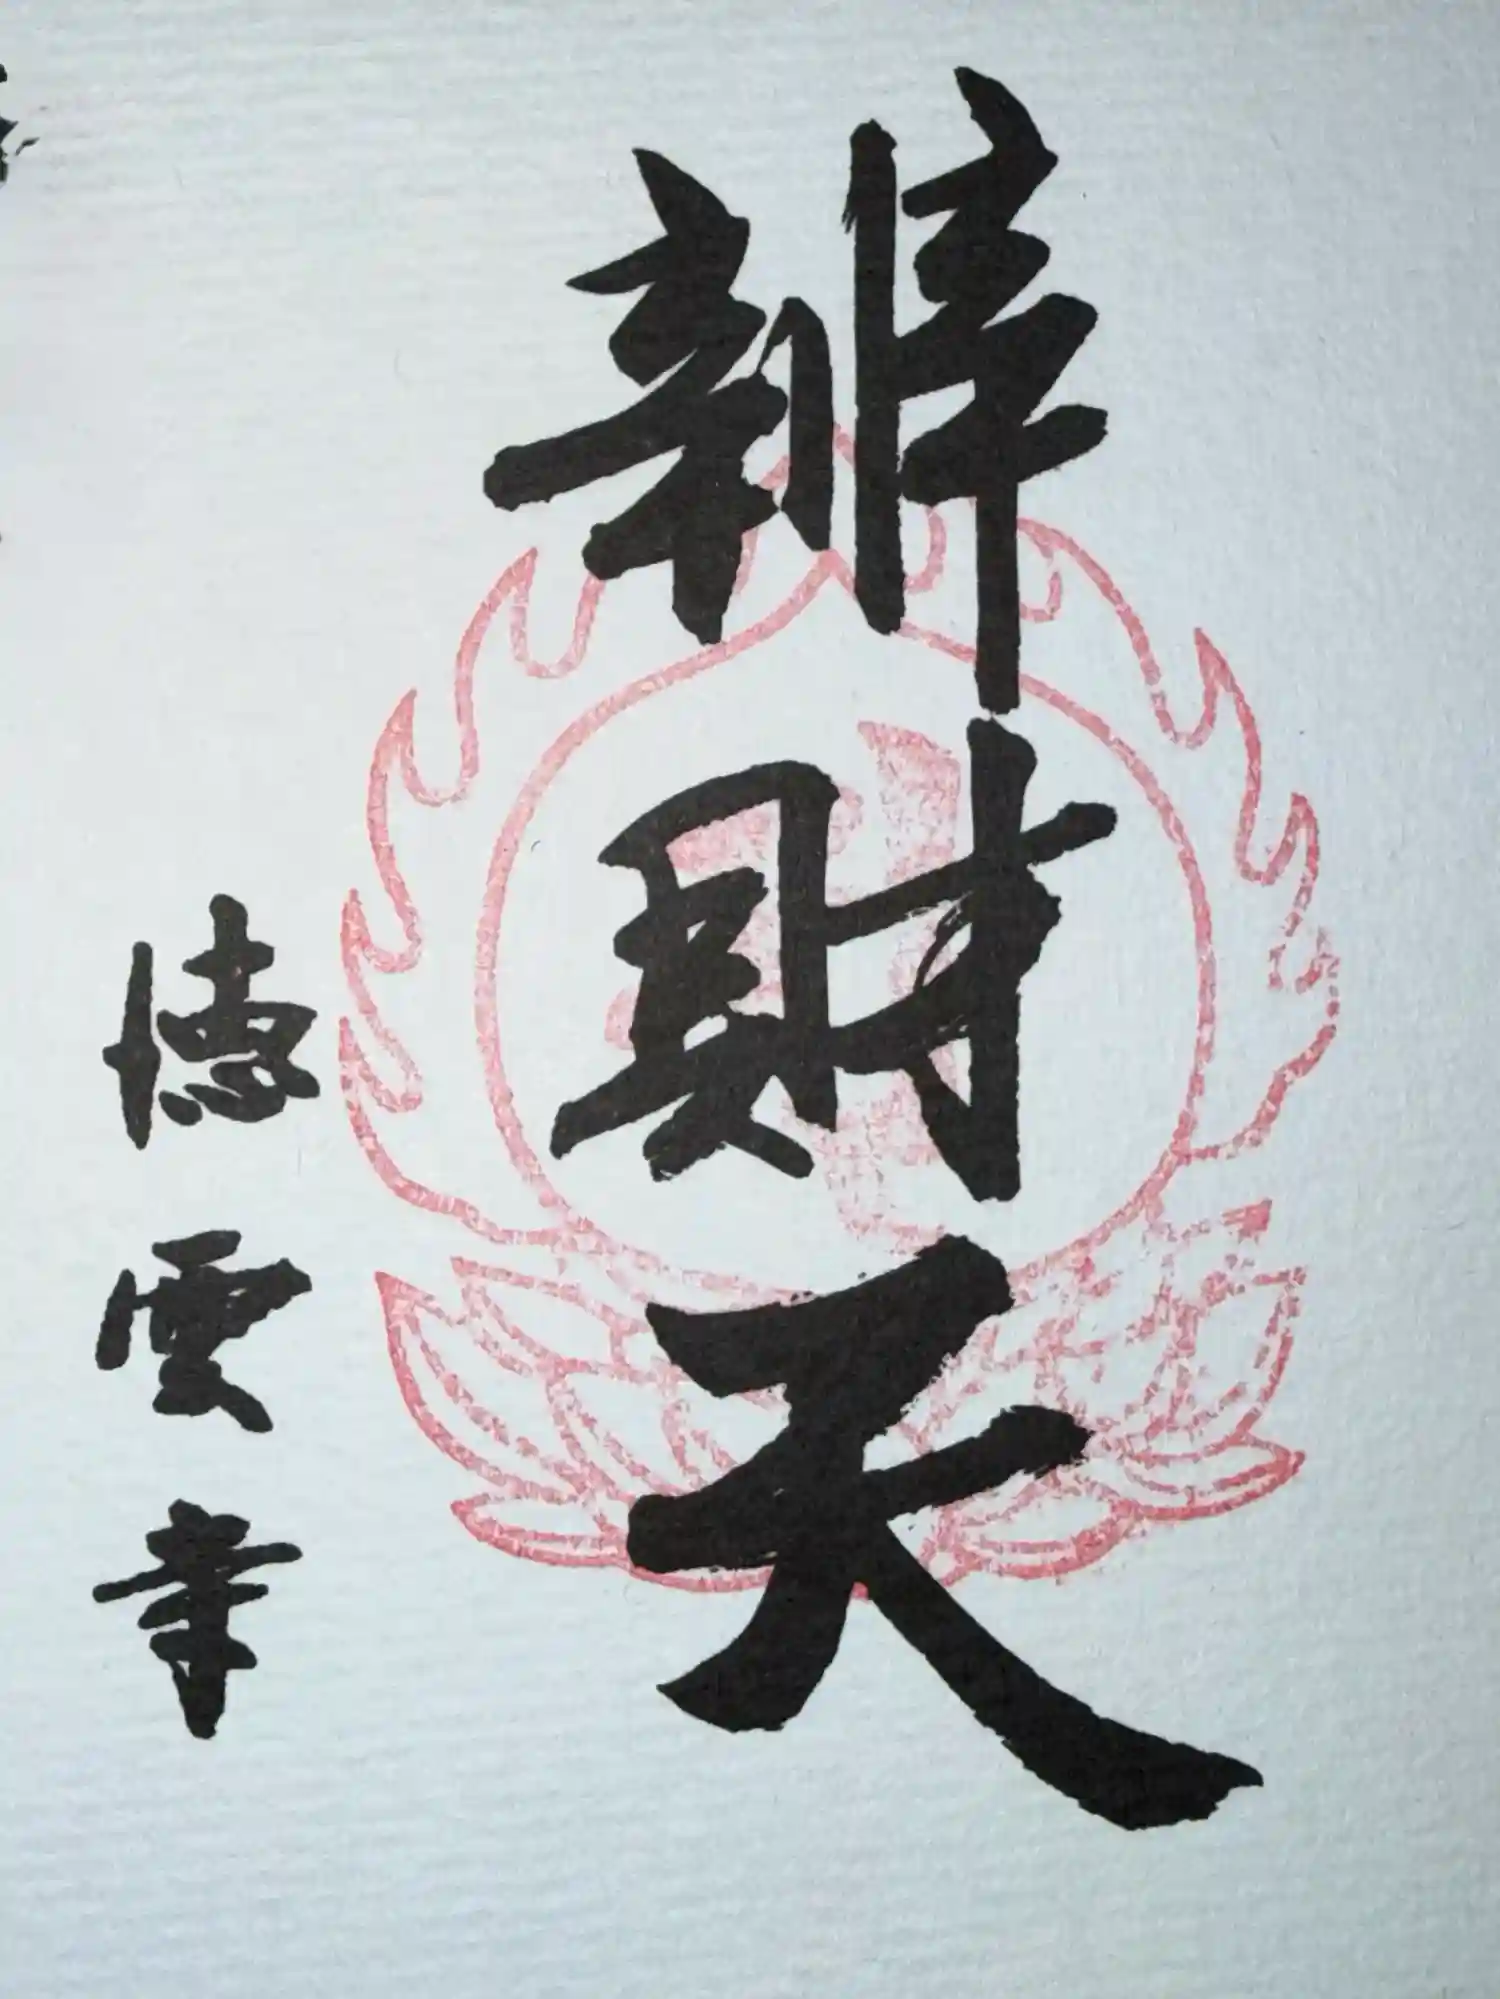 辨財天
徳雲寺